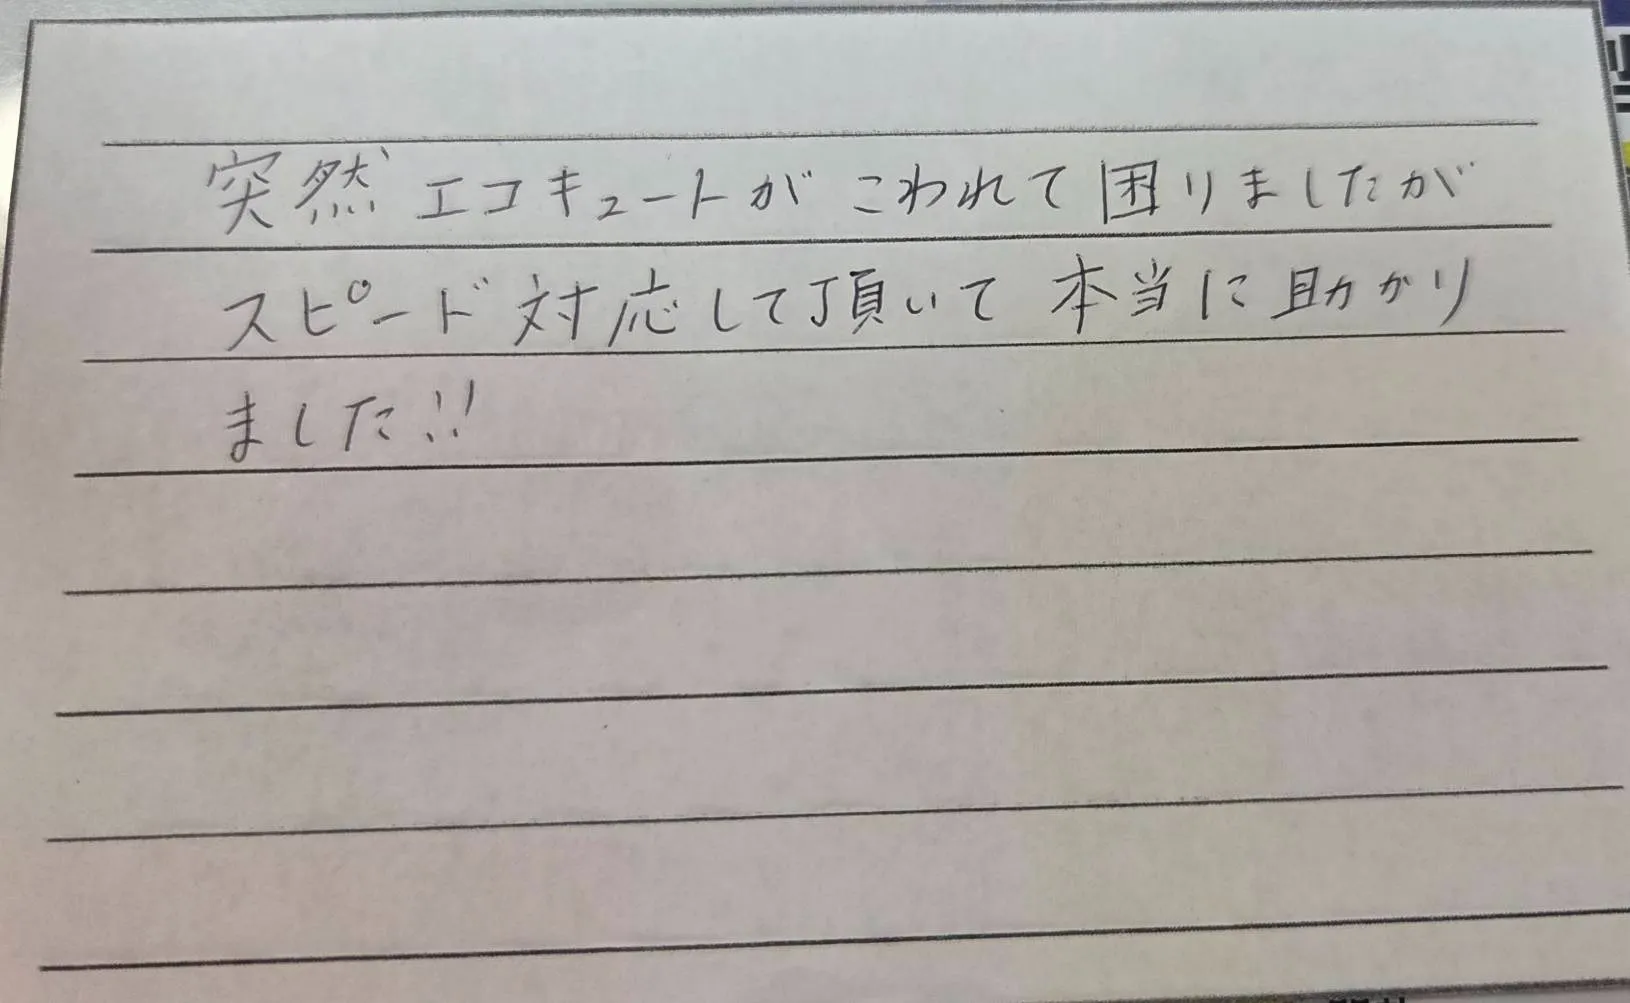 突然エコキュートがこわれて困りましたが
スピード対応して頂いて本当に助かり
ました!!